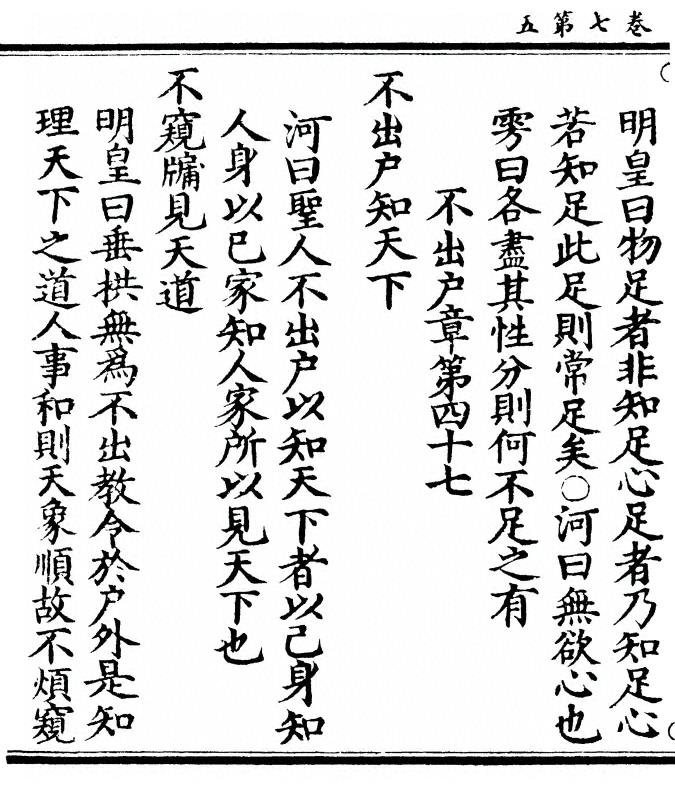 五第七卷
明皇曰物足者非知足心足者乃知足心
若知足此足則常足矣○河曰無欲心也
雱曰各盡其性分則何不足之有
不出户章第四十七
不出户知天下
河曰聖人不出户以知天下者以己身知
人身以己家知人家所以見天下也
不窺牗見天道
明皇曰垂拱無爲不出教令於户外是知
理天下之道人事和則天象順故不煩窺